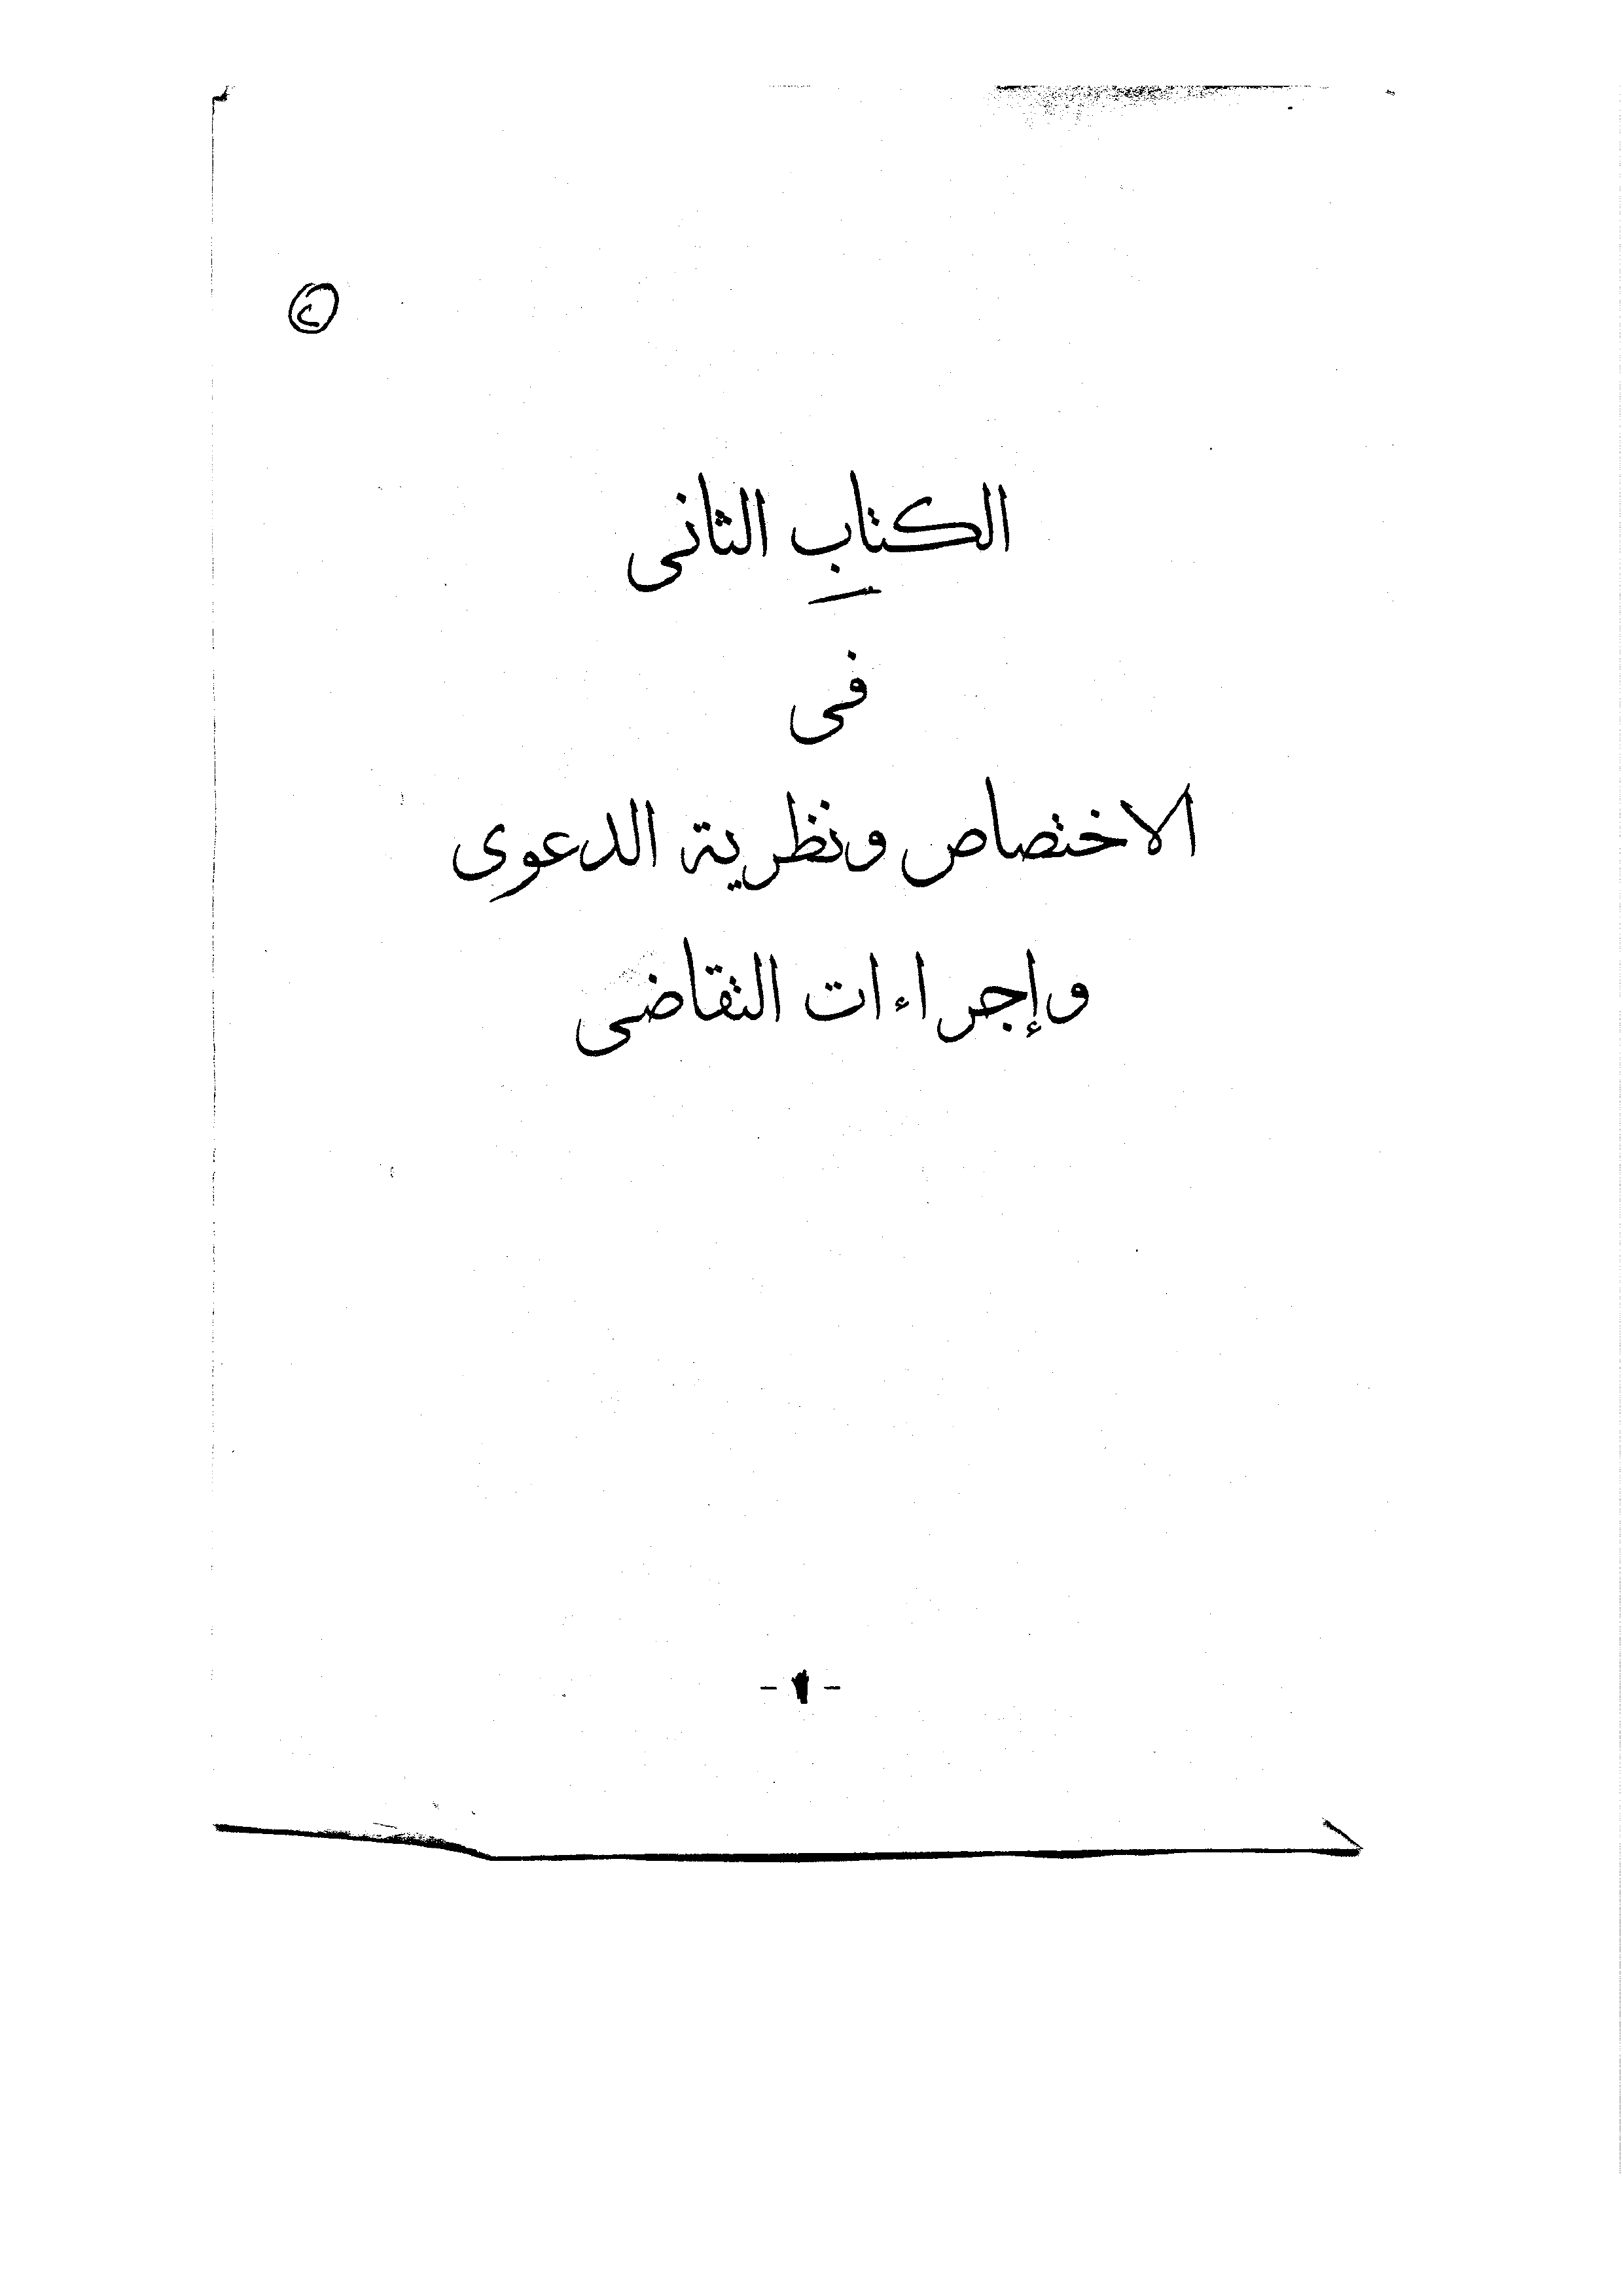 الكتاب الثانى
فى
الاختصاص ونظرية الدعوى
وإجراءات التقاضى